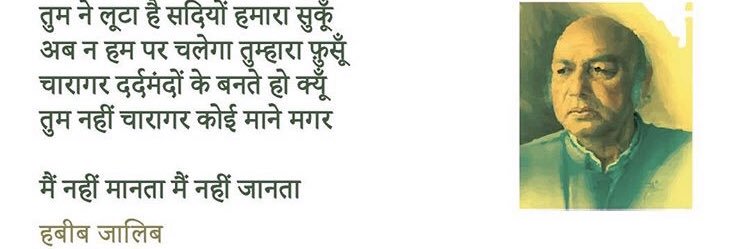 तुम ने लूटा है सदियों हमारा सुकूँ
अब न हम पर चलेगा तुम्हारा फ़ुसूँ
चारागर दर्दमंदों के बनते हो क्यूँ
तुम नहीं चारागर कोई माने मगर
मैं नहीं मानता मैं नहीं जानता
हबीब जालिब